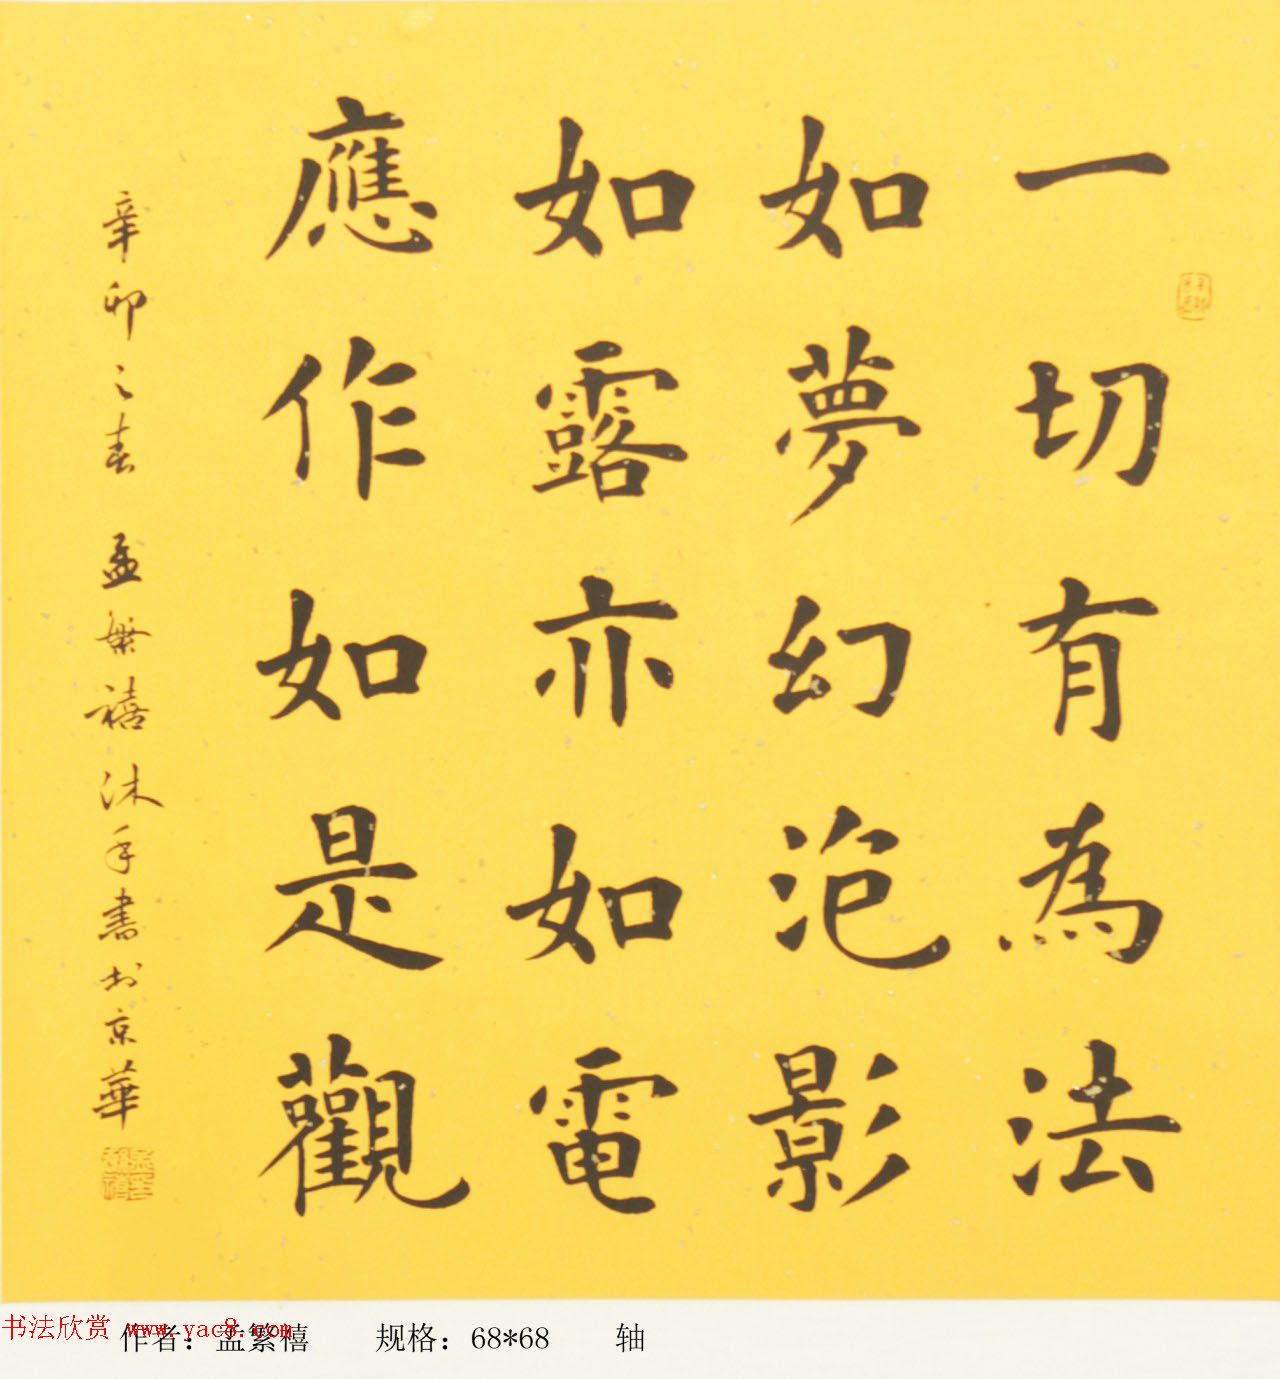 一切有為法
如夢幻泡影
如露亦如電
應作如是觀
辛卯之春 孟繁禧沐手書於京華
书法欣赏 www.yac8.com
作者：孟繁禧 规格：68*68 轴